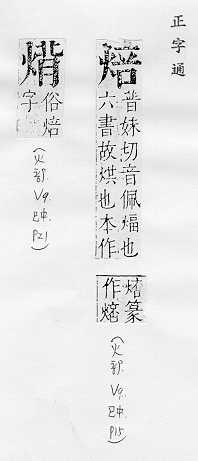 正字通
焙
普妹切音佩煏也
六書故烘也本作
篆
作
(火部 V9 巳中 P15)
俗焙
字
(火部 V9 巳中 P21)